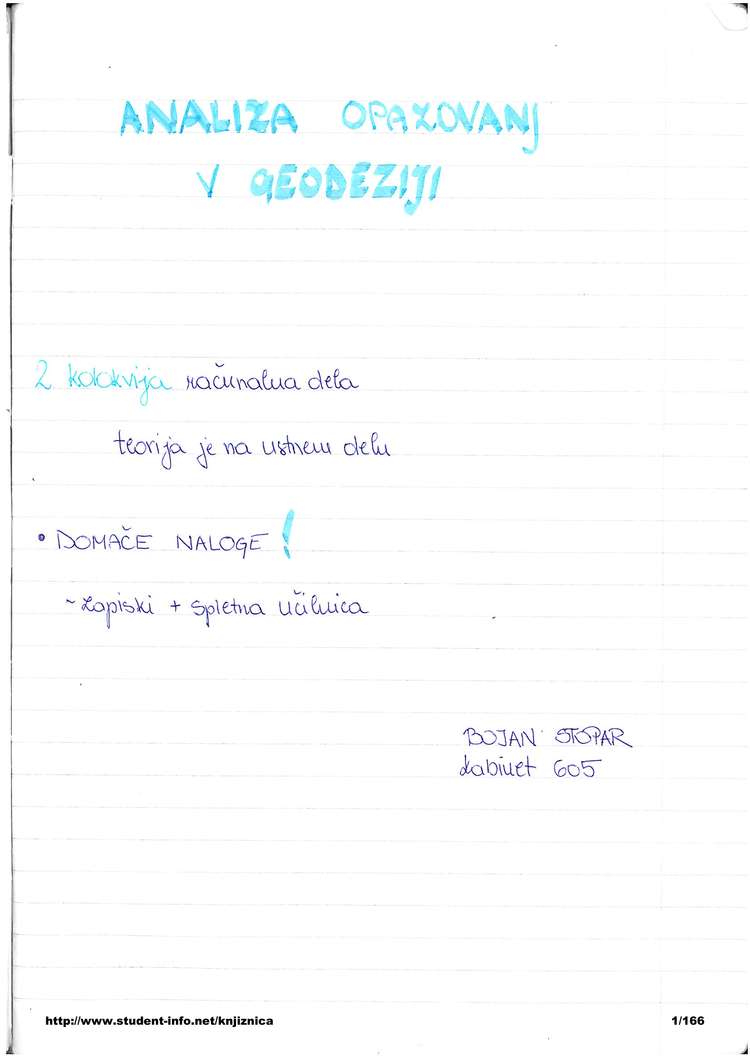 ANALIZA OPAZOVANJ
V GEODEZIJI
2 kolokvija računalna dela
teorija je na ustnem delu
• DOMAČE NALOGE !
~ zapiski + spletna učilnica
BOJAN STOPAR
kabinet 605
http://www.student-info.net/knjiznica 1/166